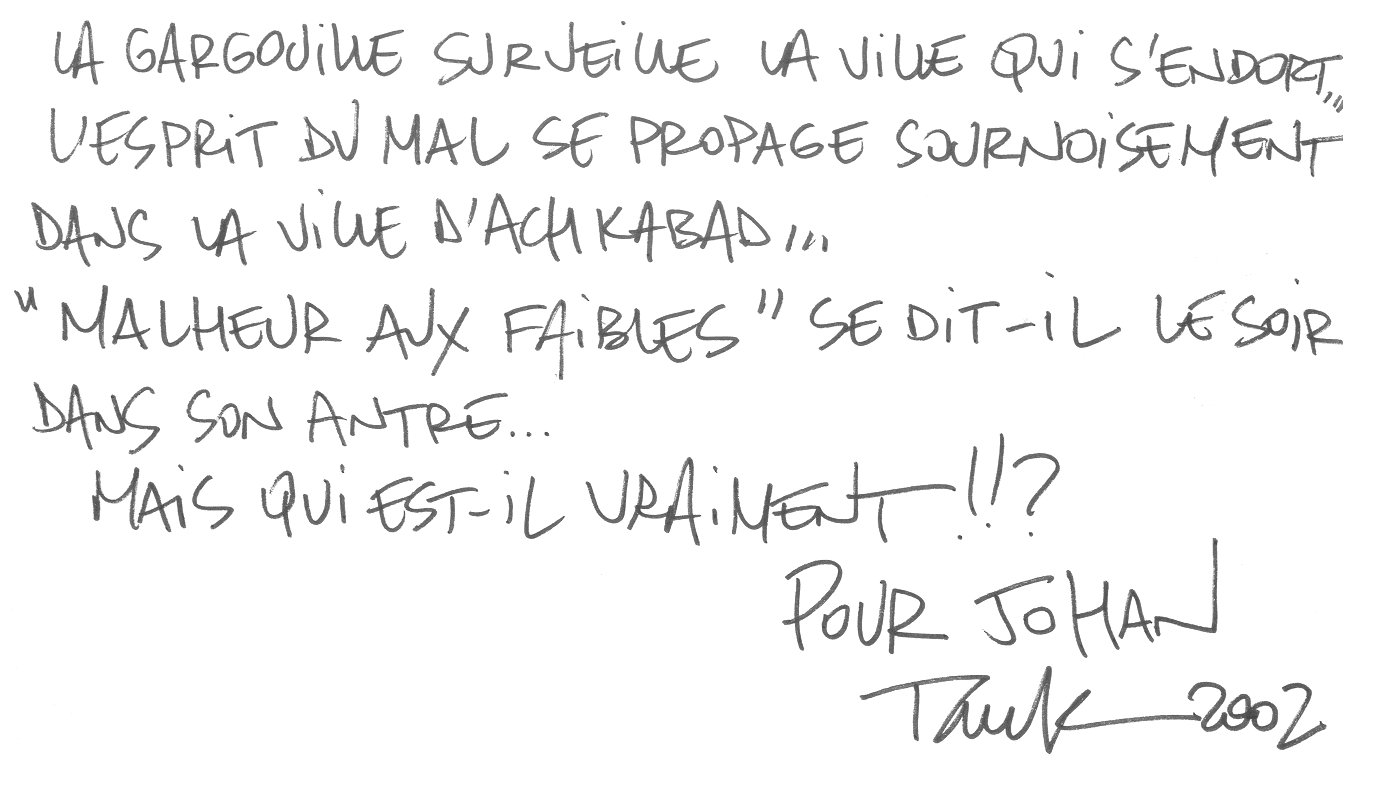 LA GARGOUILLE SURVEILLE LA VILLE QUI S'ENDORT,,,
L'ESPRIT DU MAL SE PROPAGE SOURNOISEMENT
DANS LA VILLE D'ACHKABAD,,,
"MALHEUR AUX FAIBLES" SE DIT-IL LE SOIR
DANS SON ANTRE...
MAIS QUI EST-IL VRAIMENT !!?
POUR JOHAN
2002